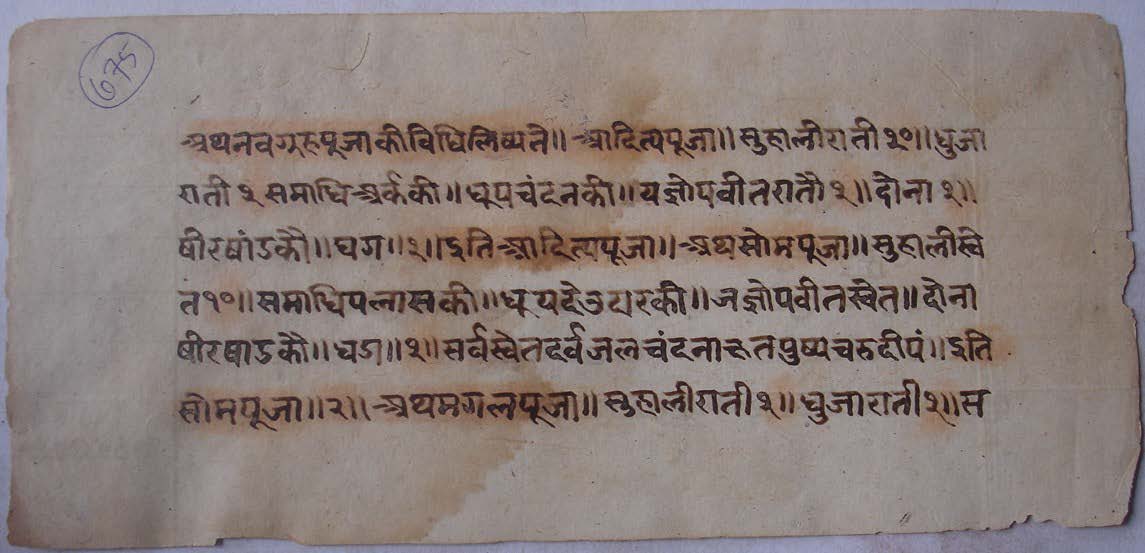 ७३५
अथनवग्रहपूजाकीविधिलिष्यते॥ आदित्यपूजा॥ सुहालीराती१०॥ धुजा
राती १ समाधिअर्ककी॥ धूपचंदनकी॥ यज्ञोपवीतरातौ १॥ दोना १॥
षीरषांडकौ॥ घडा॥ १॥ इतिआदित्यपूजा॥ अथसोमपूजा॥ सुहालीस्वे
त१०॥ समाधिपलासकी॥ धूपदेउदारकी॥ जज्ञोपवीतस्वेत॥ दोना
षीरषाडकौ॥ घडा॥ १॥ सर्वस्वेतदर्वजलचंदनाक्षतपुष्पचरुदीपं॥ इति
सोमपूजा॥ २॥ अथमगलपूजा॥ सुहालीराती १॥ धुजाराती १॥ स